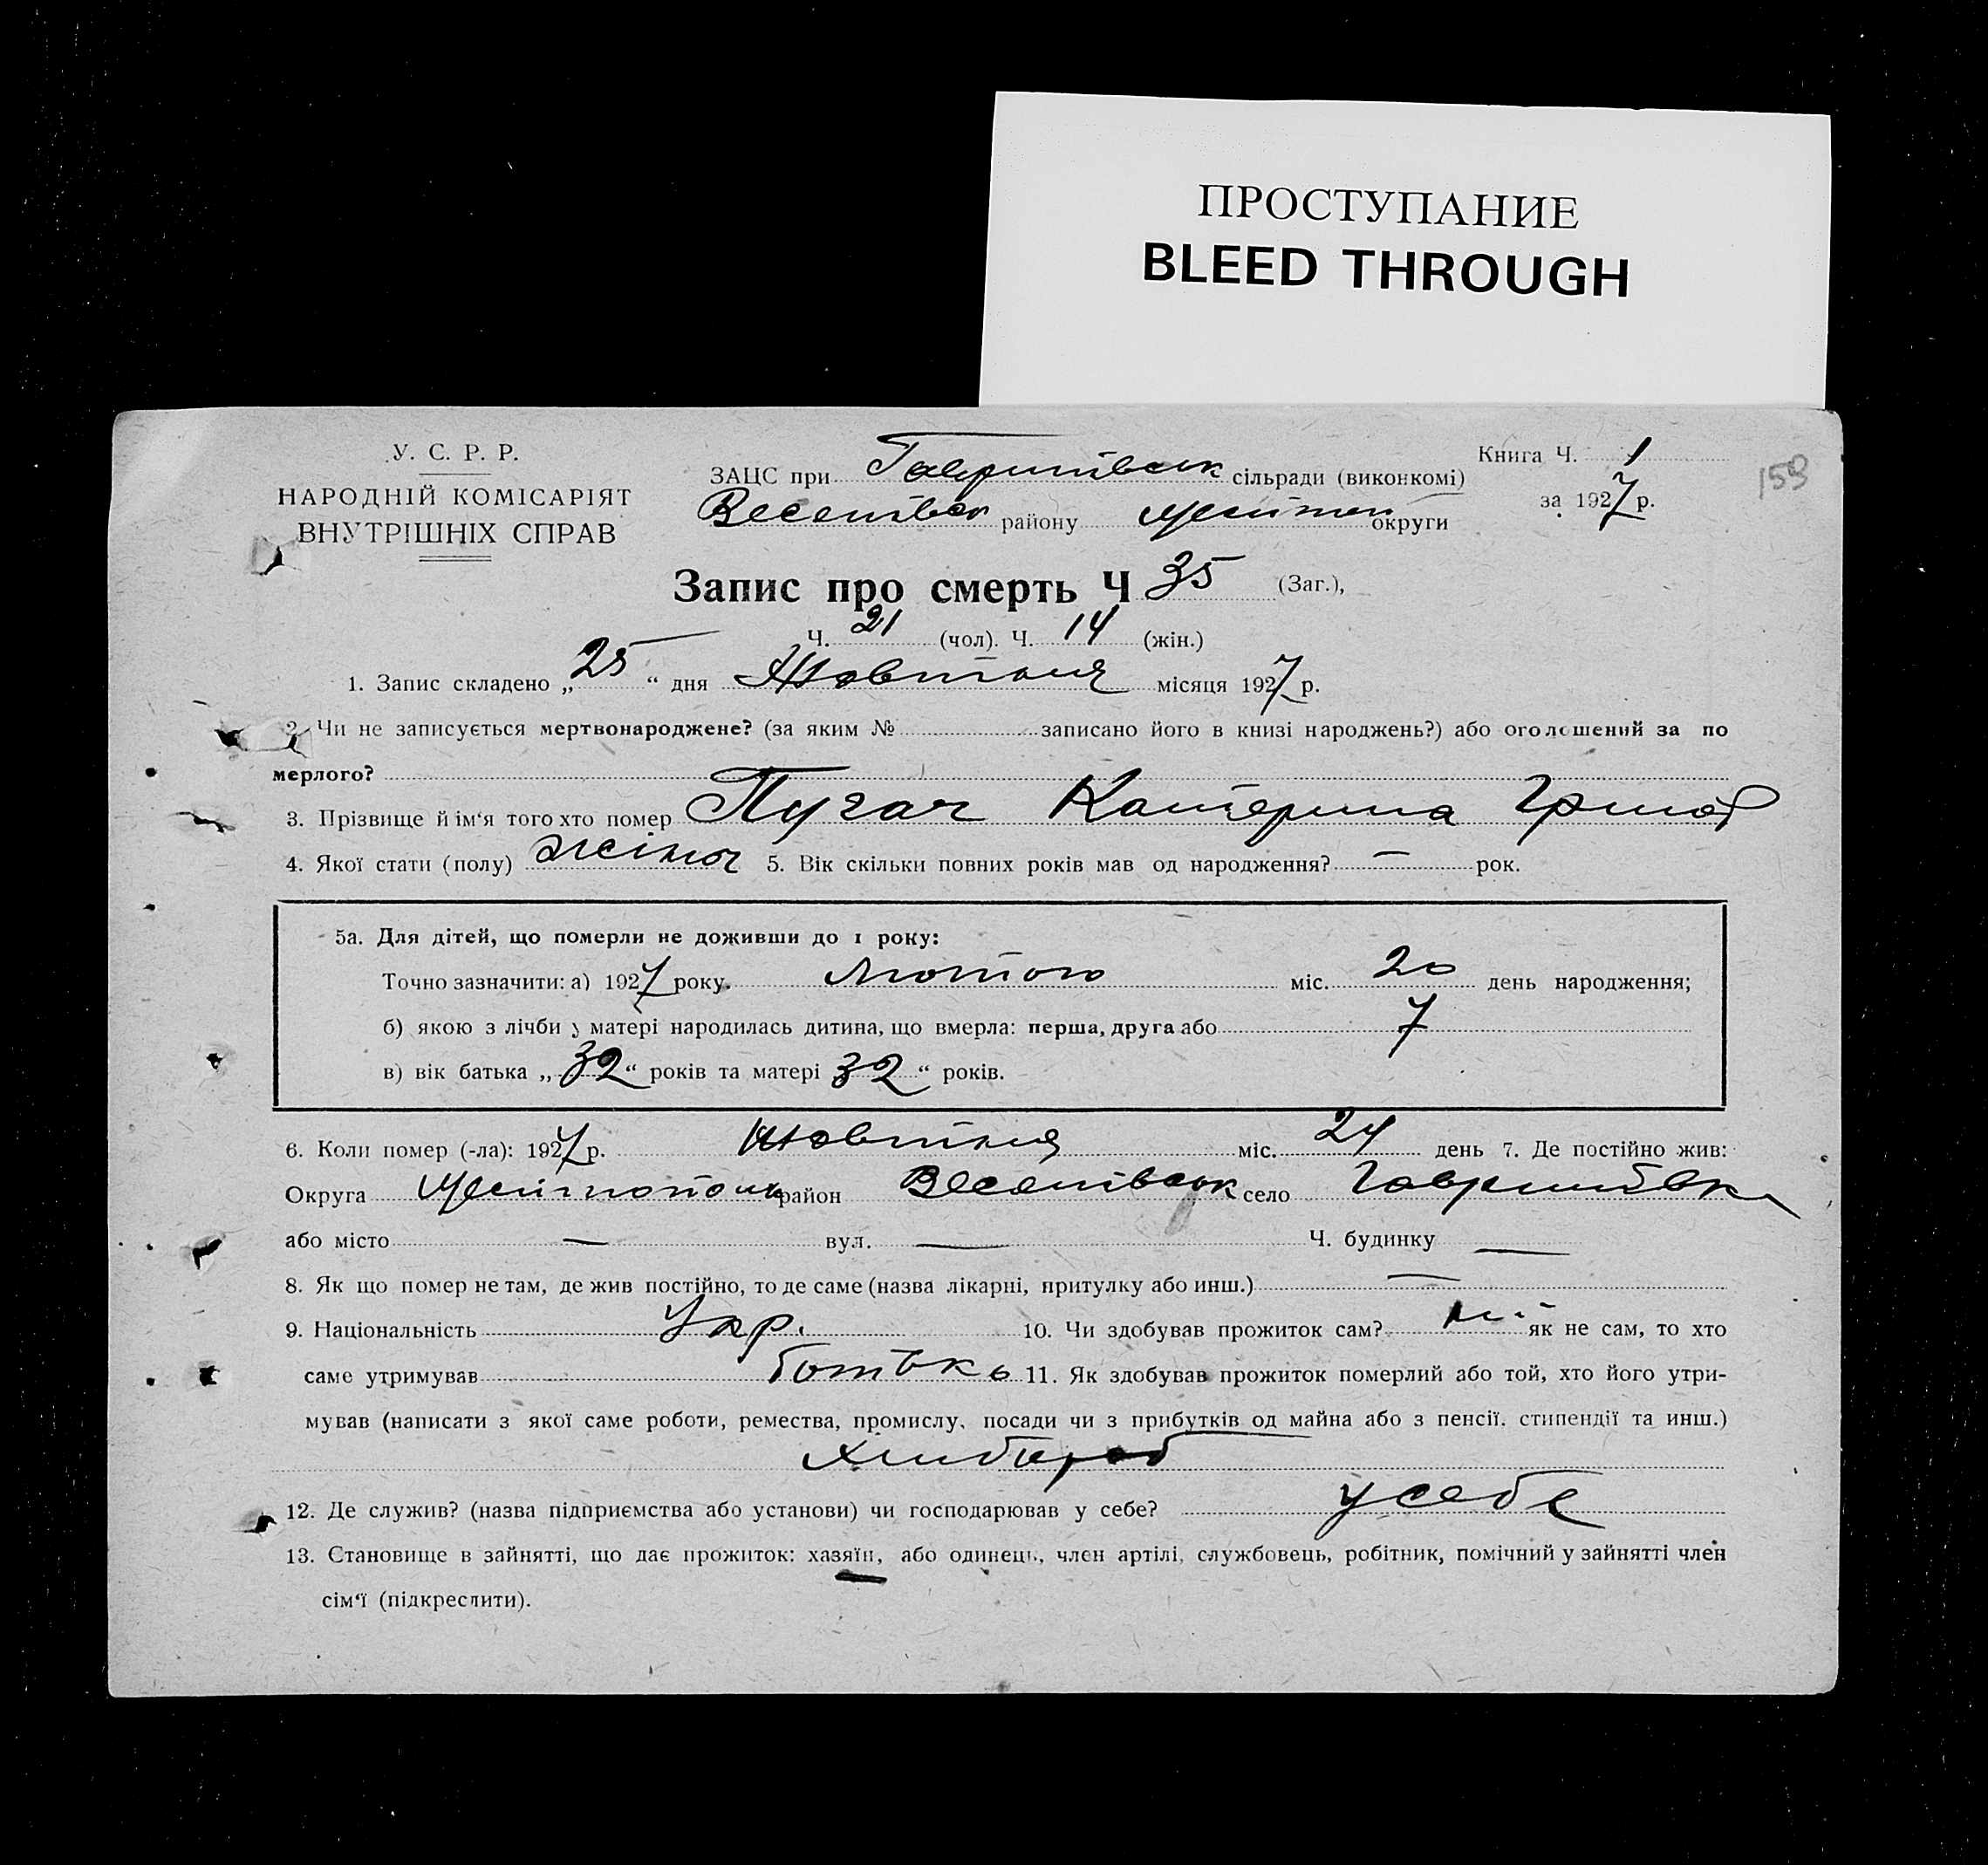 ПРОСТУПАНИЕ
BLEED THROUGH
У. С. Р. Р.
НАРОДНІЙ КОМІСАРІЯТ
ВНУТРІШНІХ СПРАВ
Книга Ч. 1
за 1927 р.
159
ЗАЦС при Гаврилівськ сільради (виконкомі)
Веселівськ району Мелітоп округи
Запис про смерть Ч 35 (Заг.),
Ч. 21 (чол). Ч. 14 (жін.)
1. Запис складено „25“ дня Жовтня місяця 1927 р.
2. Чи не записується мертвонароджене? (за яким № записано його в книзі народжень?) або оголошений за по
мерлого?
3. Прізвище й ім‘я того хто помер Пугач Катерина Григор
4. Якої стати (полу) жіноч 5. Вік скільки повних років мав од народження? — рок.
5а. Для дітей, що померли не доживши до 1 року:
Точно зазначити: а) 1927 року. Лютого міс. 20 день народження;
б) якою з лічби у матері народилась дитина, що вмерла: перша, друга або 7
в) вік батька „32“ років та матері 32“ років.
6. Коли помер (-ла): 1927 р. Жовтня міс. 24 день 7. Де постійно жив:
Округа Мелітополь район Веселівськ село Гаврилівка
або місто — вул. — Ч. будинку —
8. Як що помер не там, де жив постійно, то де саме (назва лікарні, притулку або инш.) —
9. Національність Укр. 10. Чи здобував прожиток сам? ні як не сам, то хто
саме утримував батько 11. Як здобував прожиток померлий або той, хто його утри-
мував (написати з якої саме роботи, ремества, промислу, посади чи з прибутків од майна або з пенсії. стипендії та инш.)
Хлібороб
12. Де служив? (назва підприємства або установи) чи господарював у себе? у себе
13. Становище в зайнятті, що дає прожиток: хазяїн, або одинець, член артілі, службовець, робітник, помічний у зайнятті член
сім‘ї (підкреслити).